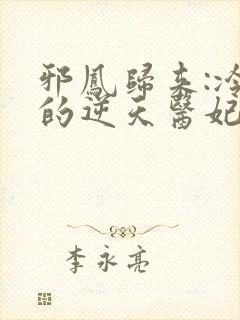 邪鳳歸来:冷
的逆天醫妃
李永亮